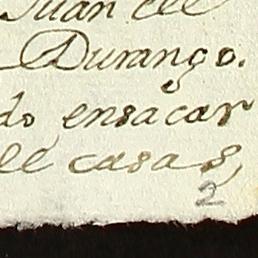 Juan de
Durango.
do ensacar
de casas,
2